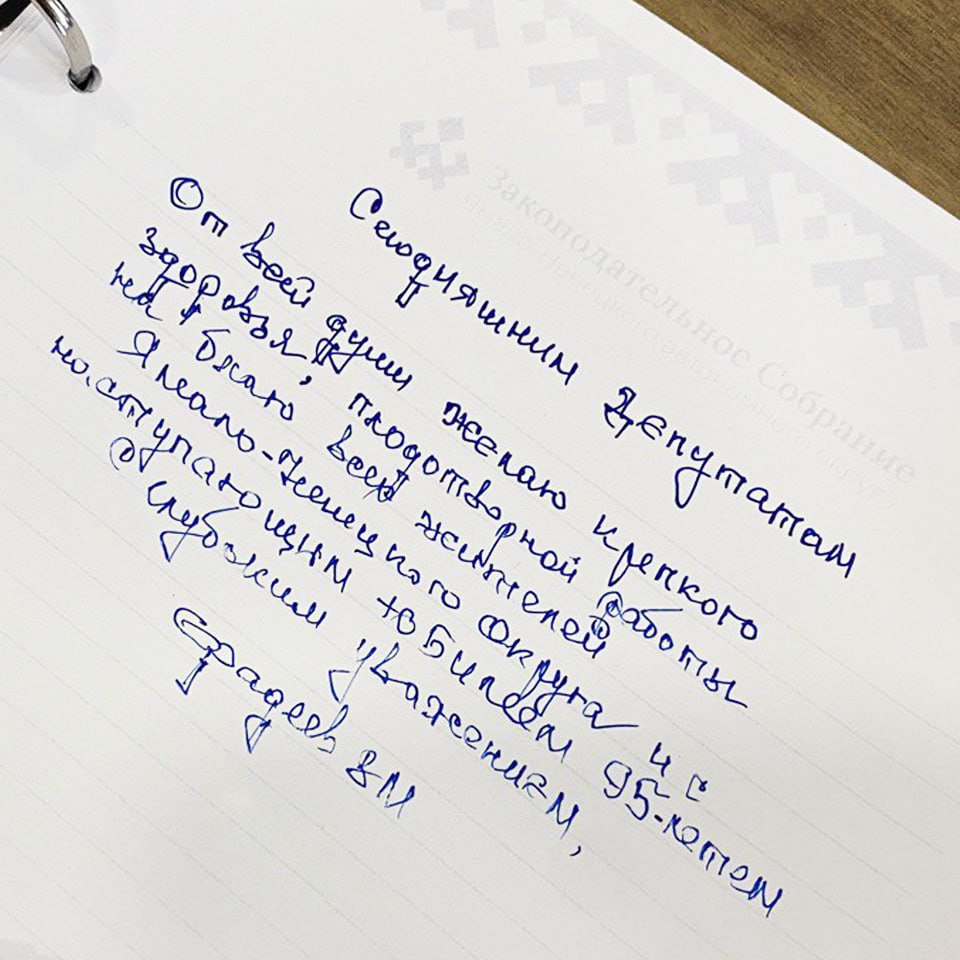 Законодательное Собрание
Сегодняшним Депутатам
От всей души желаю крепкого
здоровья, плодотворной работы
на благо всех жителей
Ямало-Ненецкого округа и с
наступающим Юбилеем 95-летем
С глубоким уважением,
Фадеев ВМ